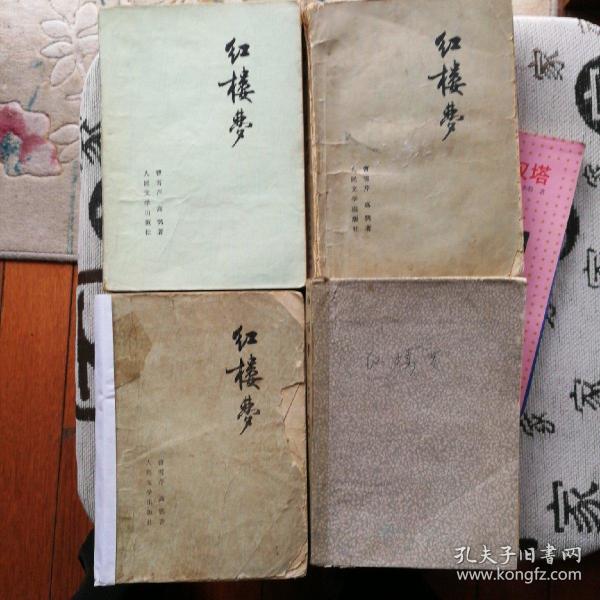 红楼梦
曹雪芹 高鹗著
人民文学出版社
红楼梦
曹雪芹 高鹗著
人民文学出版社
红楼梦
曹雪芹 高鹗著
人民文学出版社
红楼梦
汉塔
著
家
家
家
家
家
孔夫子旧书网
www.kongfz.com